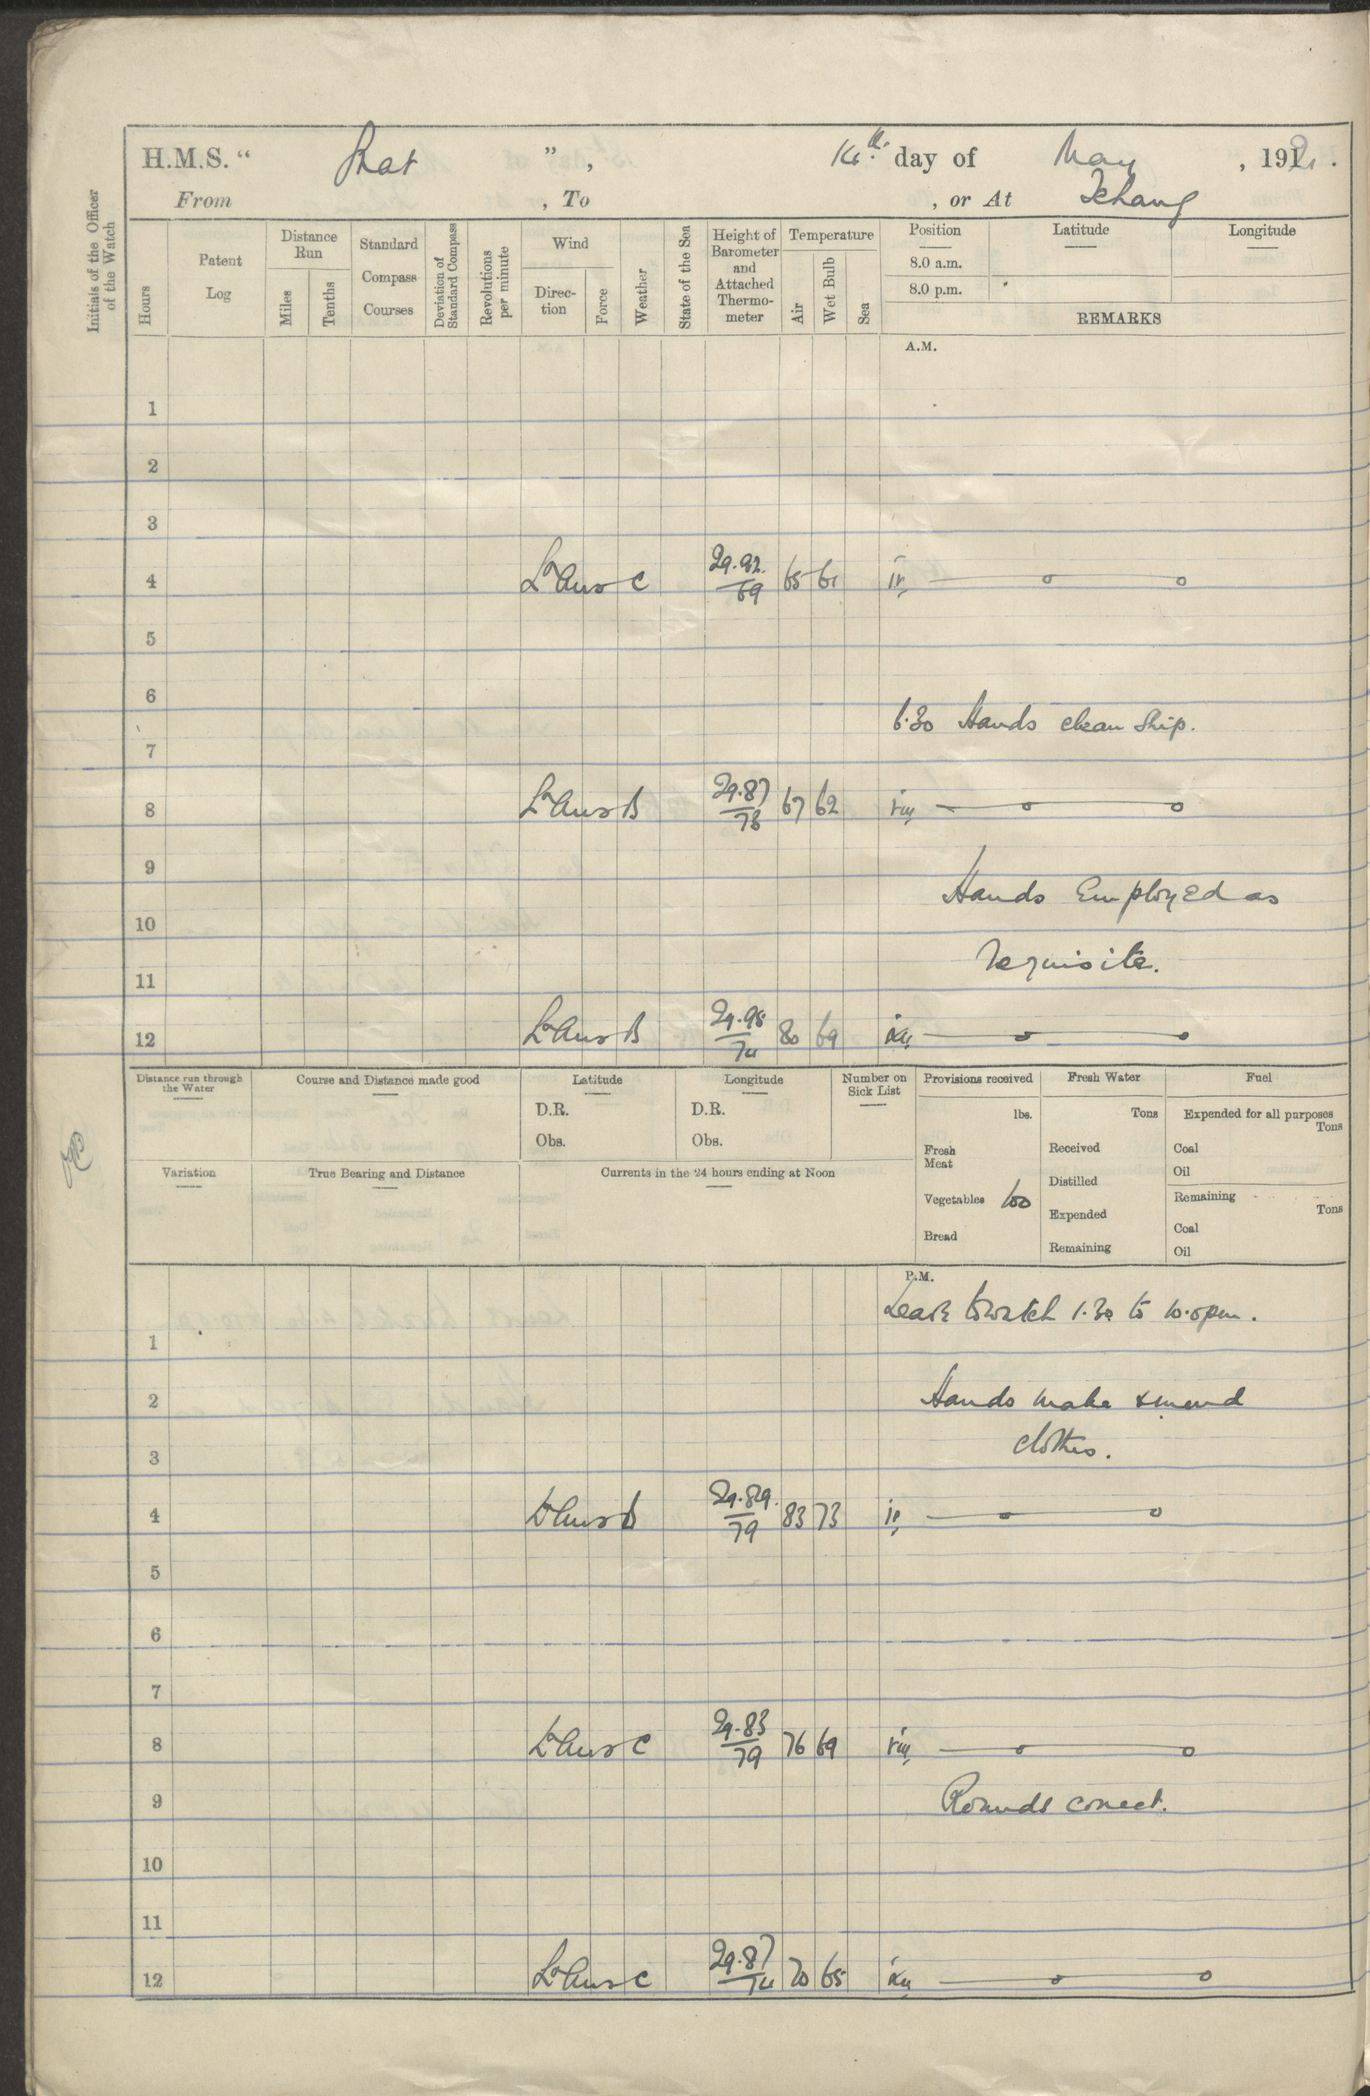 H.M.S. " ", 14th day of May, 191
From , To , or At Ichang
Initials of the Officer of the Watch
Hours
Patent Log
Distance Run
Miles
Tenths
Standard Compass Courses
Deviation of Standard Compass
Revolutions per minute
Wind
Direction
Force
Weather
State of the Sea
Height of Barometer and Attached Thermometer
Temperature
Air
Wet Bulb
Sea
Position
8.0 a.m.
8.0 p.m.
Latitude
Longitude
REMARKS
A.M.
1
2
3
4 Lt Airs C 29.92 69 65 61 iv
5
6
6.30 Hands clean Ship.
7
8 Lt Airs B 29.87 73 67 62 viii
9
Hands Employed as
10
requisite.
11
12 Lt Airs B 29.98 74 80 69 xii
Distance run through the Water
Course and Distance made good
Latitude
D.R.
Obs.
Longitude
D.R.
Obs.
Number on Sick List
Provisions received
lbs.
Fresh Meat
Vegetables 100
Bread
Fresh Water
Tons
Received
Distilled
Expended
Remaining
Fuel
Expended for all purposes
Tons
Coal
Oil
Remaining
Tons
Coal
Oil
Variation
True Bearing and Distance
Currents in the 24 hours ending at Noon
P.M.
Leave to watch 1.30 to 10.0pm.
1
2 Hands make & mend
clothes.
3
4 Lt Airs B 29.89. 79 83 73 iv
5
6
7
8 Lt Airs C 29.83 79 76 69 viii
9 Rounds correct.
10
11
12 Lt Airs C 29.87 74 70 65 xii